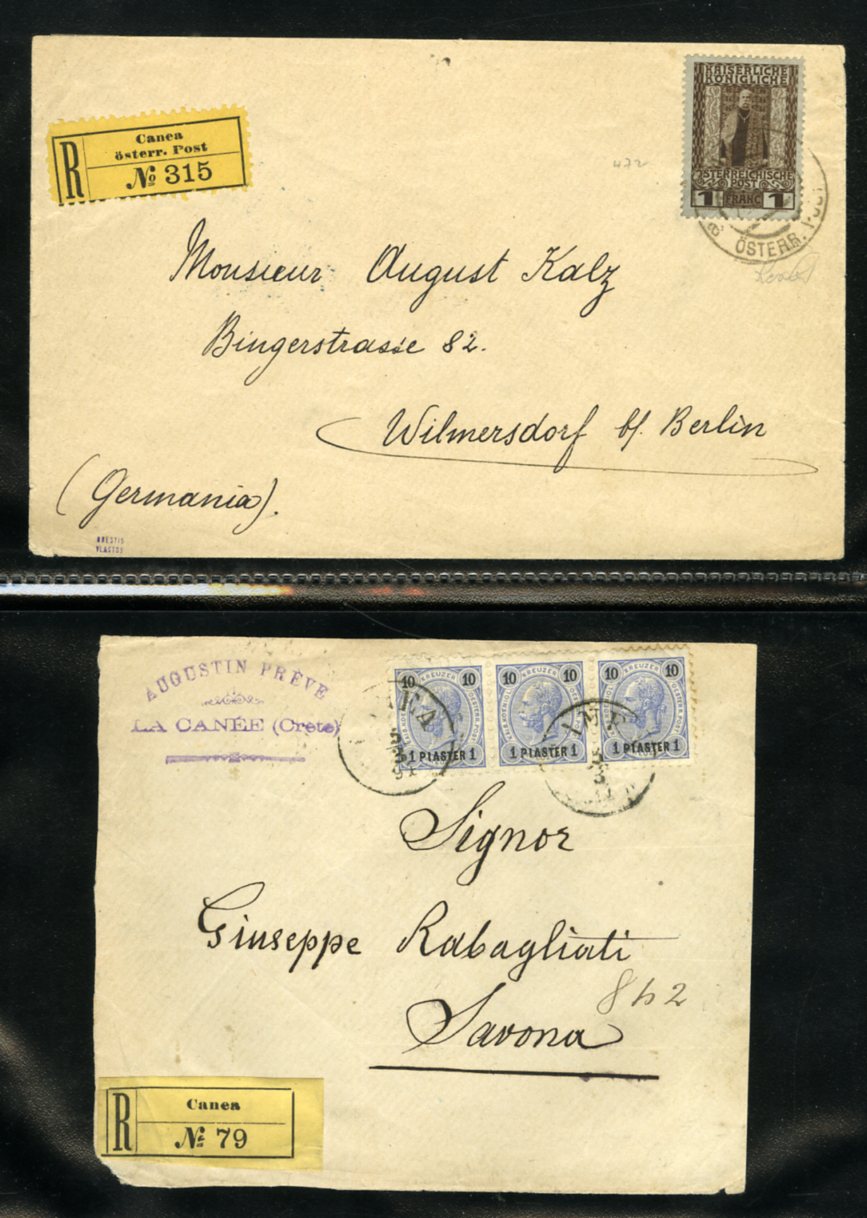 R
Canea
österr. Post
№ 315
KAISERLICHE
KÖNIGLICHE
ÖSTERREICHISCHE
POST
1 FRANC 1
ÖSTERR. POST
472
Monsieur August Kalz
Bingerstrasse 82.
Wilmersdorf b/. Berlin
(Germania).
ORESTIS
VLASTOS
AUGUSTIN PRÈVE
LA CANÉE (Crète)
10 KREUZER 10
10 KREUZER 10
10 KREUZER 10
1 PIASTER 1
1 PIASTER 1
1 PIASTER 1
Signor
Giuseppe Rabagliati
Savona
R
Canea
№ 79